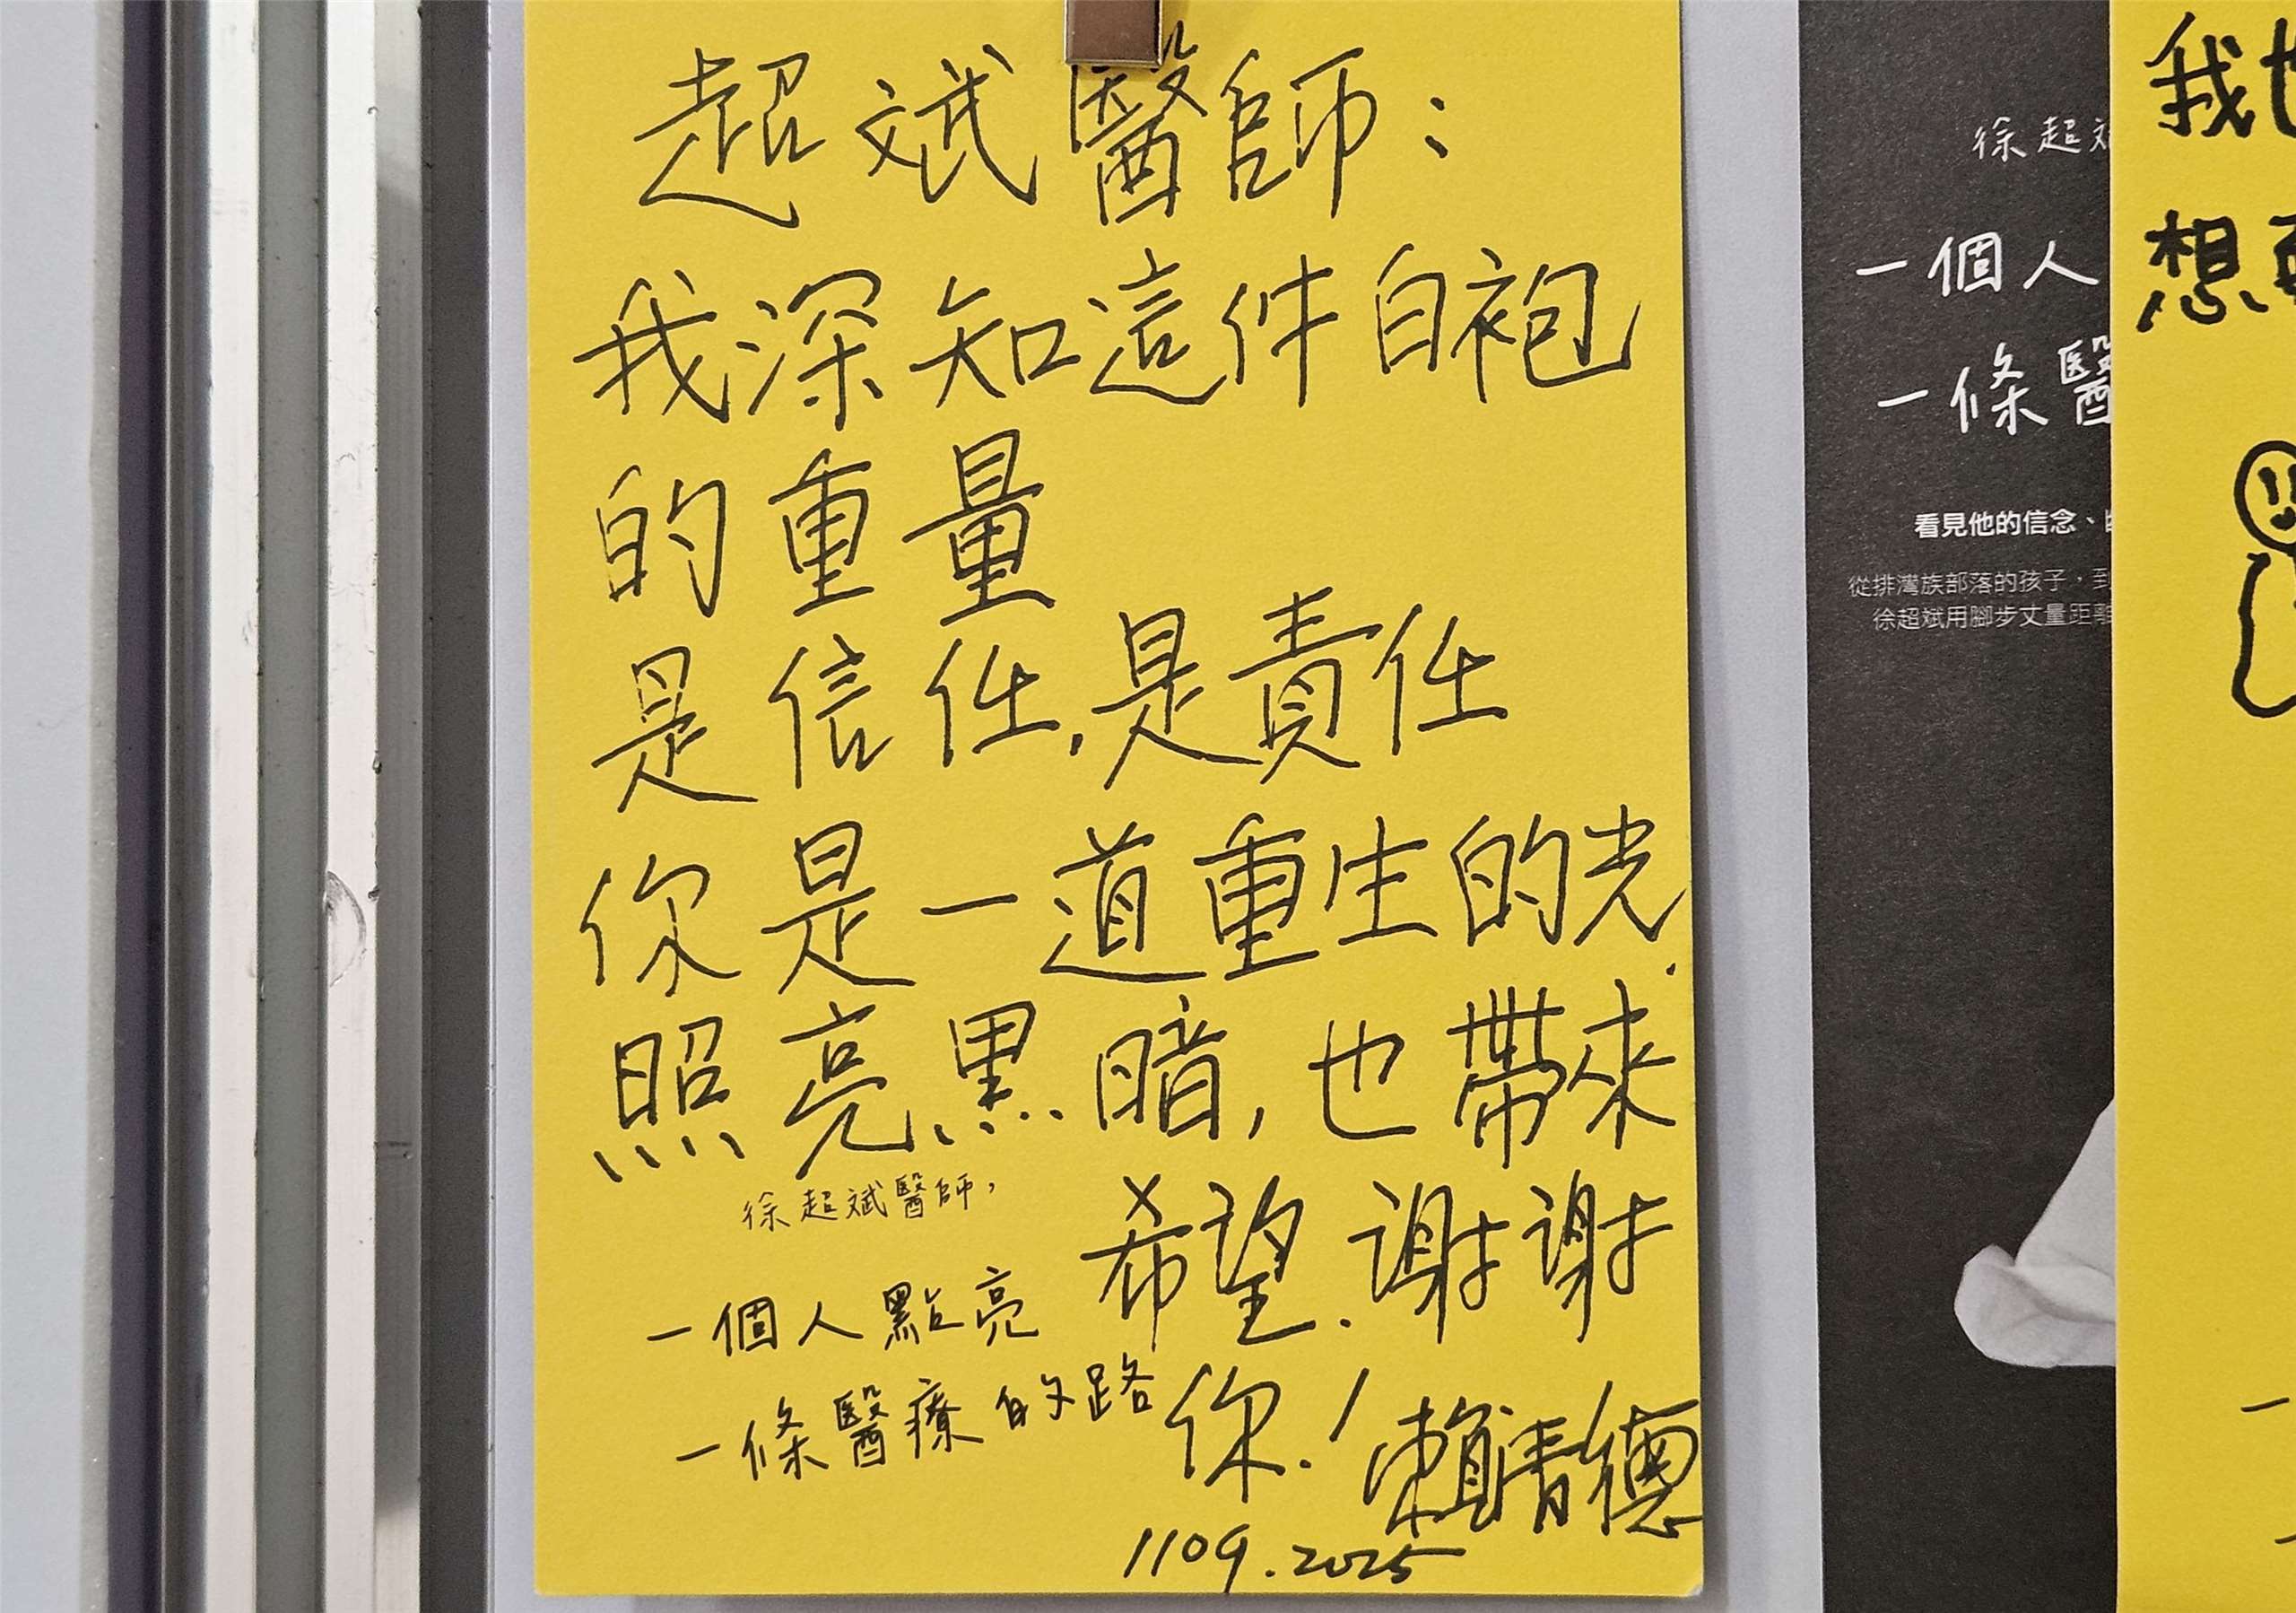 超斌醫師：
我深知這件白袍
的重量
是信任,是責任
你是一道重生的光.
照亮黑暗,也帶來
希望.謝謝
你!
賴清德
1109.2025
徐超斌醫師，
一個人點亮
一條醫療的路
徐超斌
一個人
一條醫
看見他的信念、
從排灣族部落的孩子，到
徐超斌用腳步丈量距離
我也
想